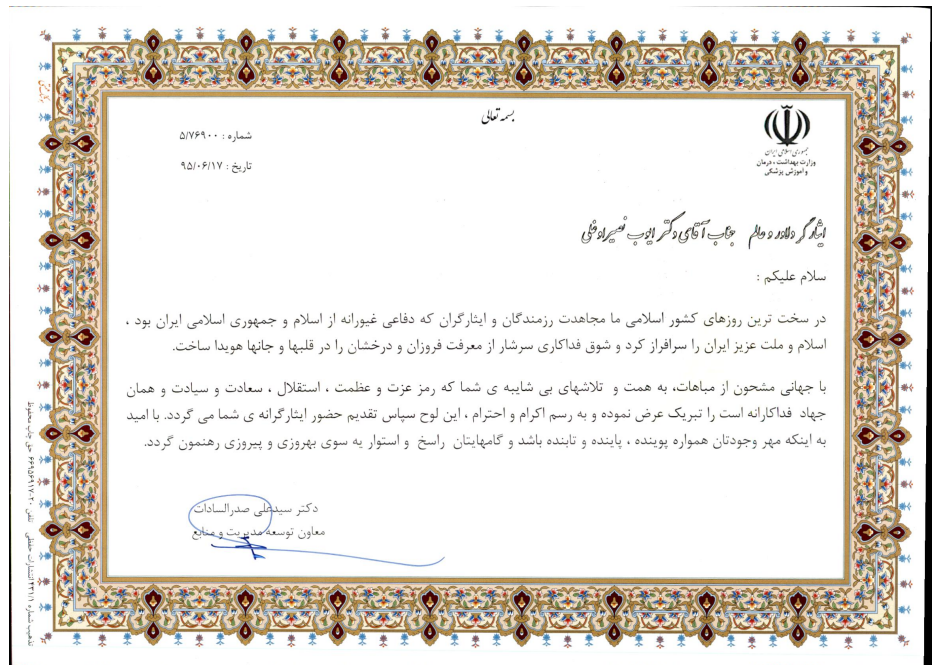 بسمه تعالی
جمهوری اسلامی ایران
وزارت بهداشت ، درمان
و آموزش پزشکی
شماره : ۵/۷۶۹۰۰
تاریخ : ۹۵/۰۶/۱۷
ایثارگر دلاور و عالم جناب آقای دکتر ایوب
سلام علیکم :
در سخت ترین روزهای کشور اسلامی ما مجاهدت رزمندگان و ایثارگران که دفاعی غیورانه از اسلام و جمهوری اسلامی ایران بود ،
اسلام و ملت عزیز ایران را سرافراز کرد و شوق فداکاری سرشار از معرفت فروزان و درخشان را در قلبها و جانها هویدا ساخت.
با جهانی مشحون از مباهات، به همت و تلاشهای بی شایبه ی شما که رمز عزت و عظمت ، استقلال ، سعادت و سیادت و همان
جهاد فداکارانه است را تبریک عرض نموده و به رسم اکرام و احترام ، این لوح سپاس تقدیم حضور ایثارگرانه ی شما می گردد. با امید
به اینکه مهر وجودتان همواره پوینده ، پاینده و تابنده باشد و گامهایتان راسخ و استوار یه سوی بهروزی و پیروزی رهنمون گردد.
دکتر سیدعلی صدرالسادات
معاون توسعه مدیریت و منابع